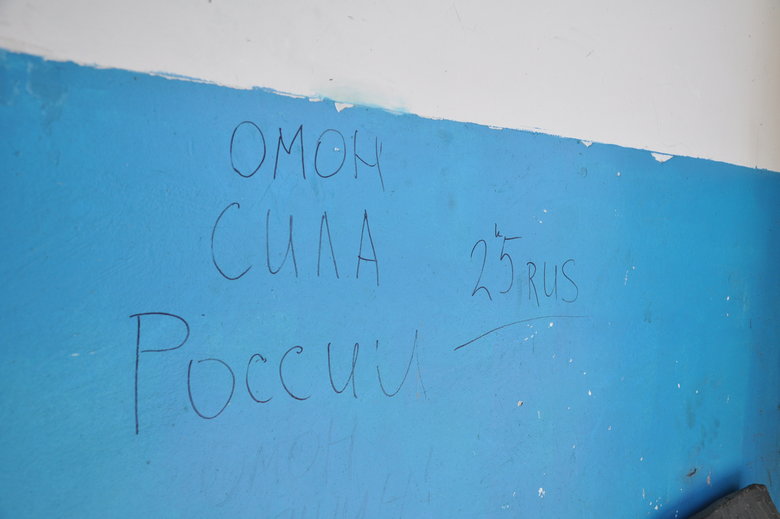 ОМОН
СИЛА
25 RUS
России
ОМОН